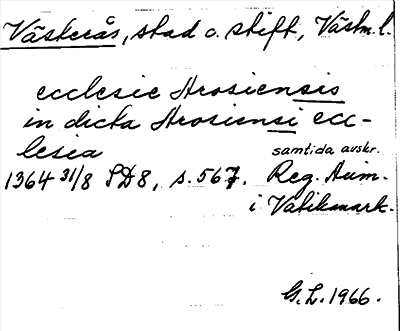 Västerås, stad o. stift, Västm. l.
ecclesie Arosiensis
in dicta Arosiensi ecc-
lesia
samtida avskr.
1364 31/8 SD8, s. 567. Reg. Avin.
i Vatikanark.
G. L. 1966.